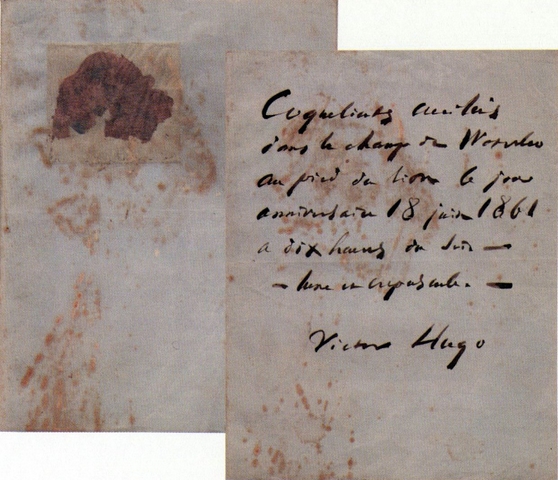 Coquelicots cueillis
dans le champ de Waterloo
au pied du lion le jour
anniversaire 18 juin 1861
a dix heures du soir —
— lune et crépuscule. —
Victor Hugo